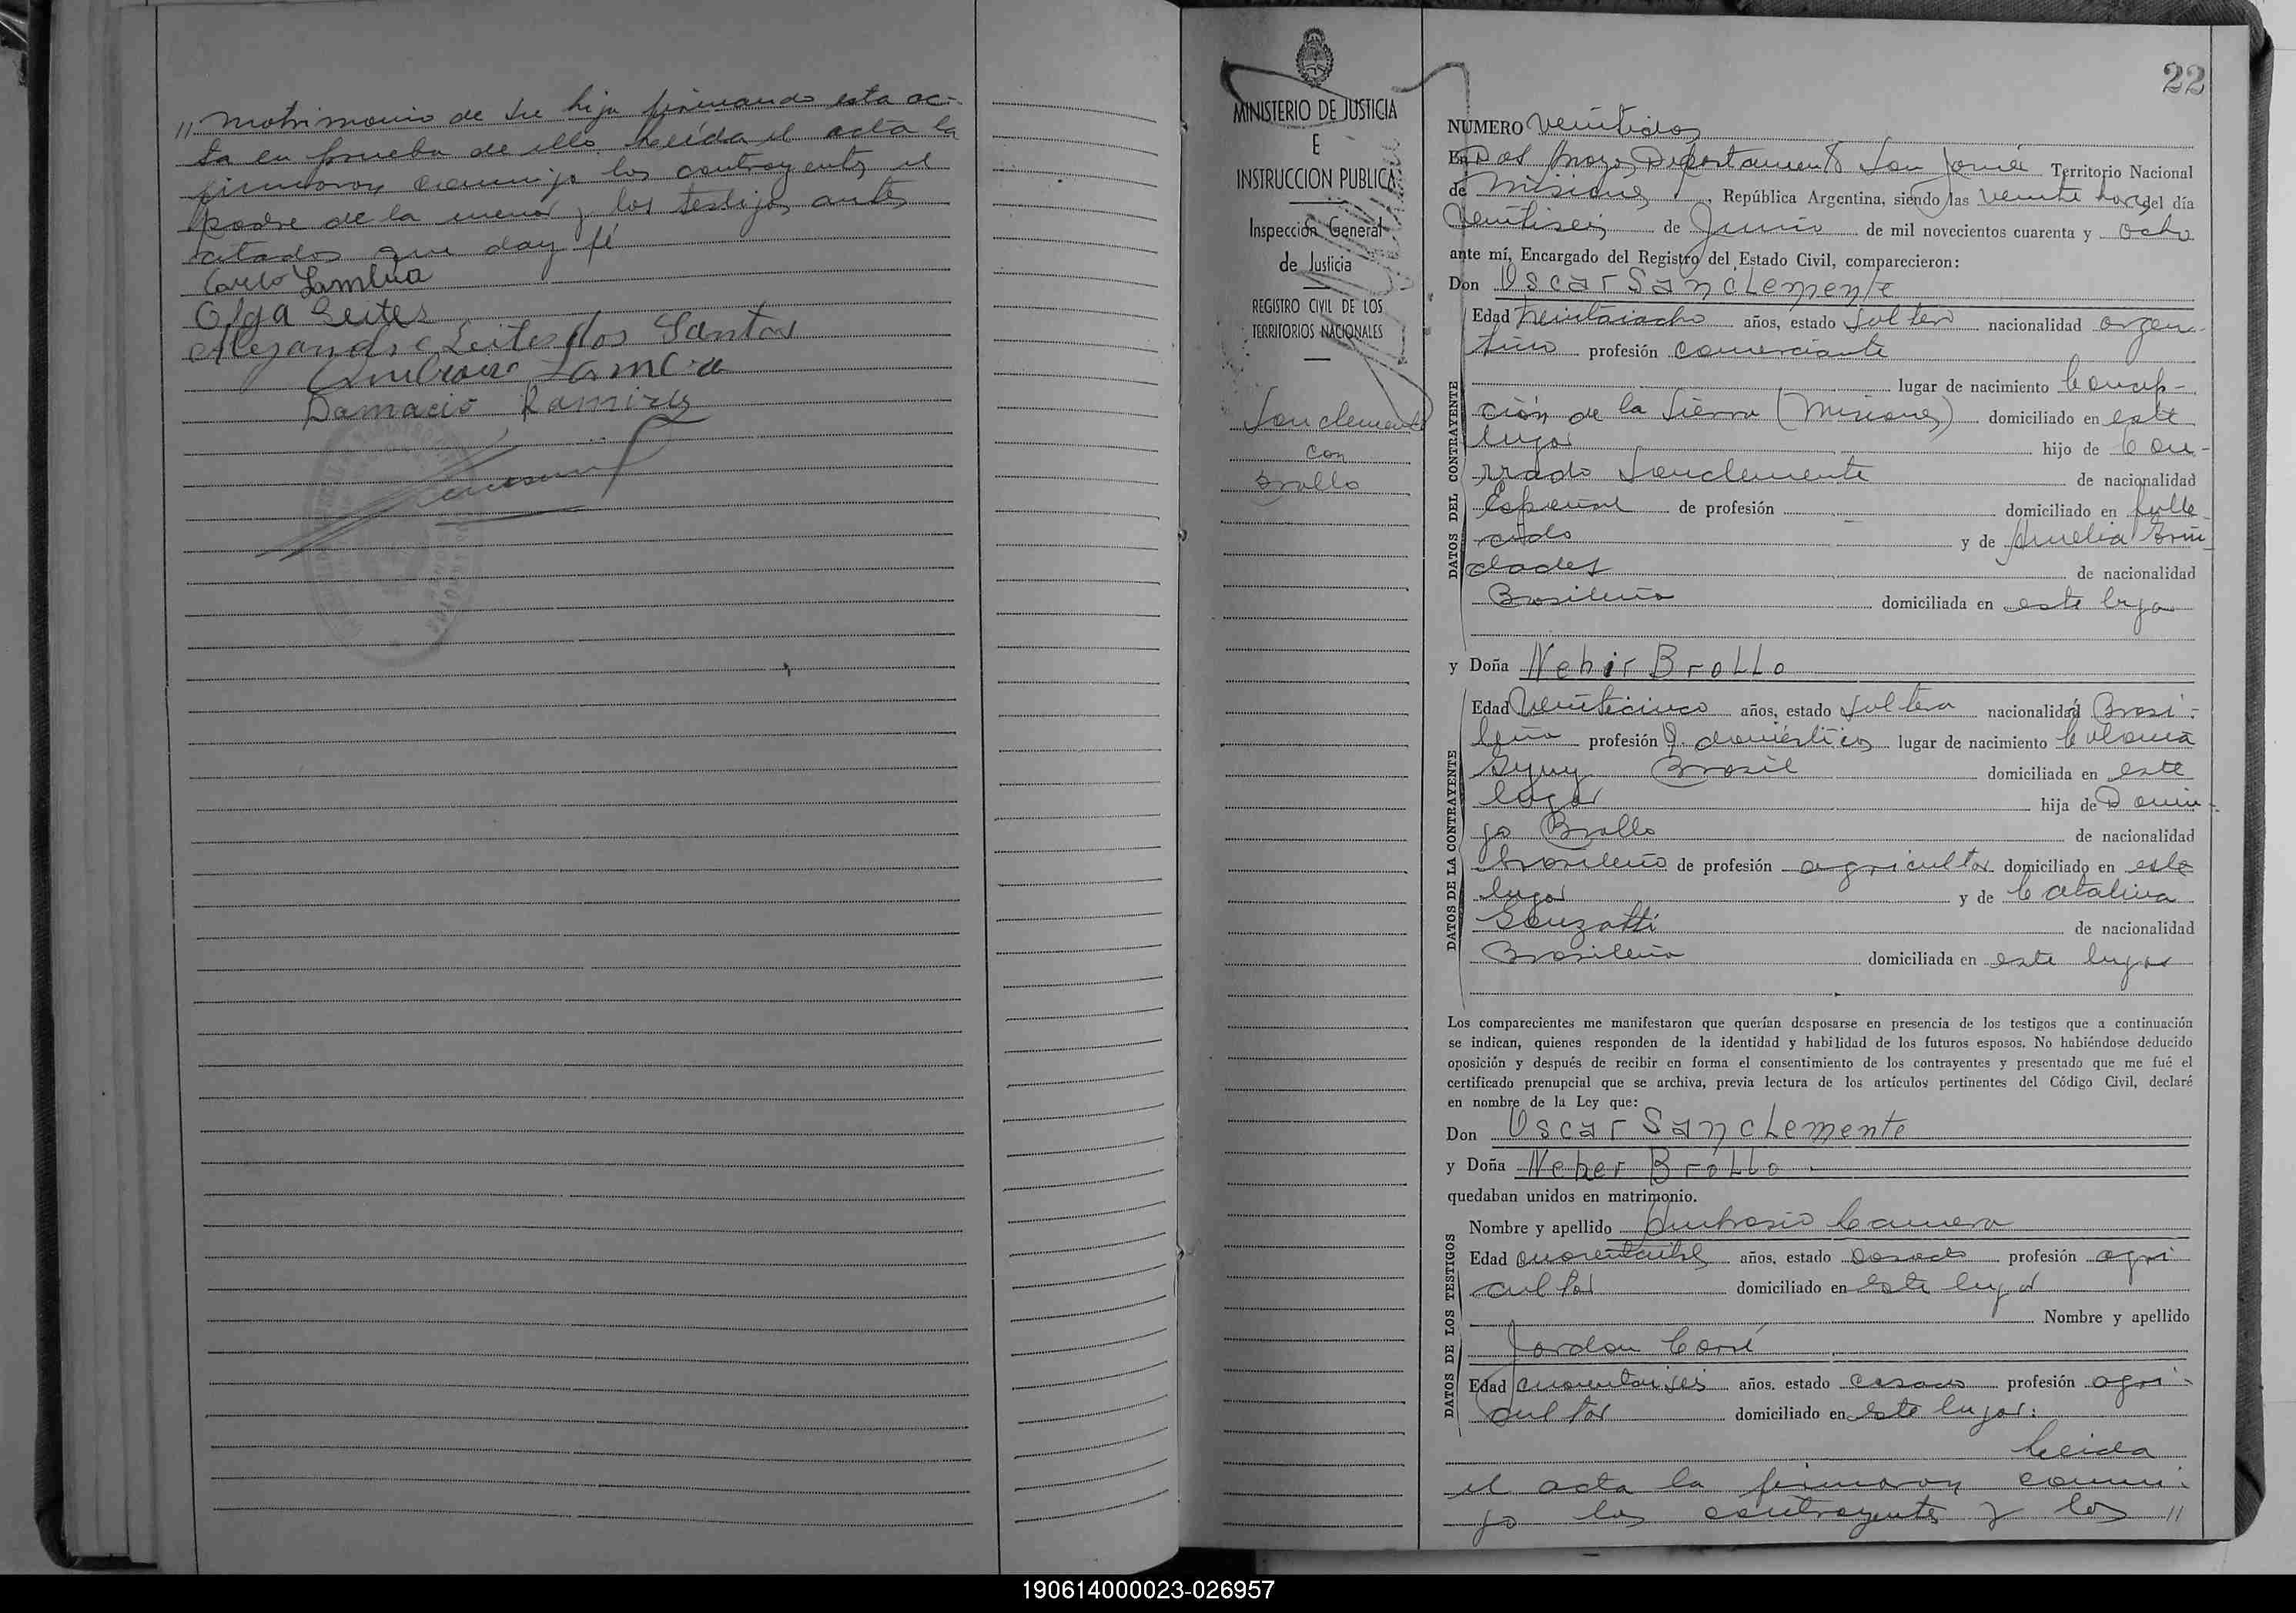 // matrimonio de su hija firmando esta ac-
ta en prueba de ello. Leída el acta la
firmaron conmigo los contrayentes el
padre de la menor y los testigos antes
citados que doy fé
Olga Leites
Alejandro Leites dos Santos
Damacio Ramirez
MINISTERIO DE JUSTICIA
E
INSTRUCCION PUBLICA
Inspección General
de Justicia
REGISTRO CIVIL DE LOS
TERRITORIOS NACIONALES
Sanclemente
con
Brollo
22
NUMERO veintidos
En Dos Departamento San Javier Territorio Nacional
de Misiones, República Argentina, siendo las veinte horas del día
veintiseis de Junio de mil novecientos cuarenta y ocho
ante mí, Encargado del Registro del Estado Civil, comparecieron:
Don Oscar SanCLemente
DATOS DEL CONTRAYENTE
Edad treintaiocho años, estado soltero nacionalidad argen-
tino profesión comerciante
lugar de nacimiento Concep-
ción de la Sierra (Misiones) domiciliado en este
lugar hijo de Con-
rrado Sanclemente de nacionalidad
Español de profesión — domiciliado en falle-
cido y de Amelia Brin-
dades de nacionalidad
Brasileña domiciliada en este lugar
y Doña Nehir BroLLo
DATOS DE LA CONTRAYENTE
Edad veinticinco años, estado soltera nacionalidad Brasi-
leña profesión Q. domésticos lugar de nacimiento Colonia
Brasil domiciliada en este
lugar hija de Domin-
go Brollo de nacionalidad
brasileño de profesión agricultor domiciliado en este
lugar y de Catalina
de nacionalidad
Brasileña domiciliada en este lugar
Los comparecientes me manifestaron que querían desposarse en presencia de los testigos que a continuación
se indican, quienes responden de la identidad y habilidad de los futuros esposos. No habiéndose deducido
oposición y después de recibir en forma el consentimiento de los contrayentes y presentado que me fué el
certificado prenupcial que se archiva, previa lectura de los artículos pertinentes del Código Civil, declaré
en nombre de la Ley que:
Don Oscar SanCLemente
y Doña Neher BroLLo
quedaban unidos en matrimonio.
DATOS DE LOS TESTIGOS
Nombre y apellido Ambrosio Camera
Edad años, estado casado profesión agri
cultor domiciliado en este lugar
Nombre y apellido
Jordan Corré
Edad cuarentaiseis años, estado casado profesión agri-
cultor domiciliado en este lugar.
Leida
el acta la firmaron conmi-
go los contrayentes y los //
190614000023-026957